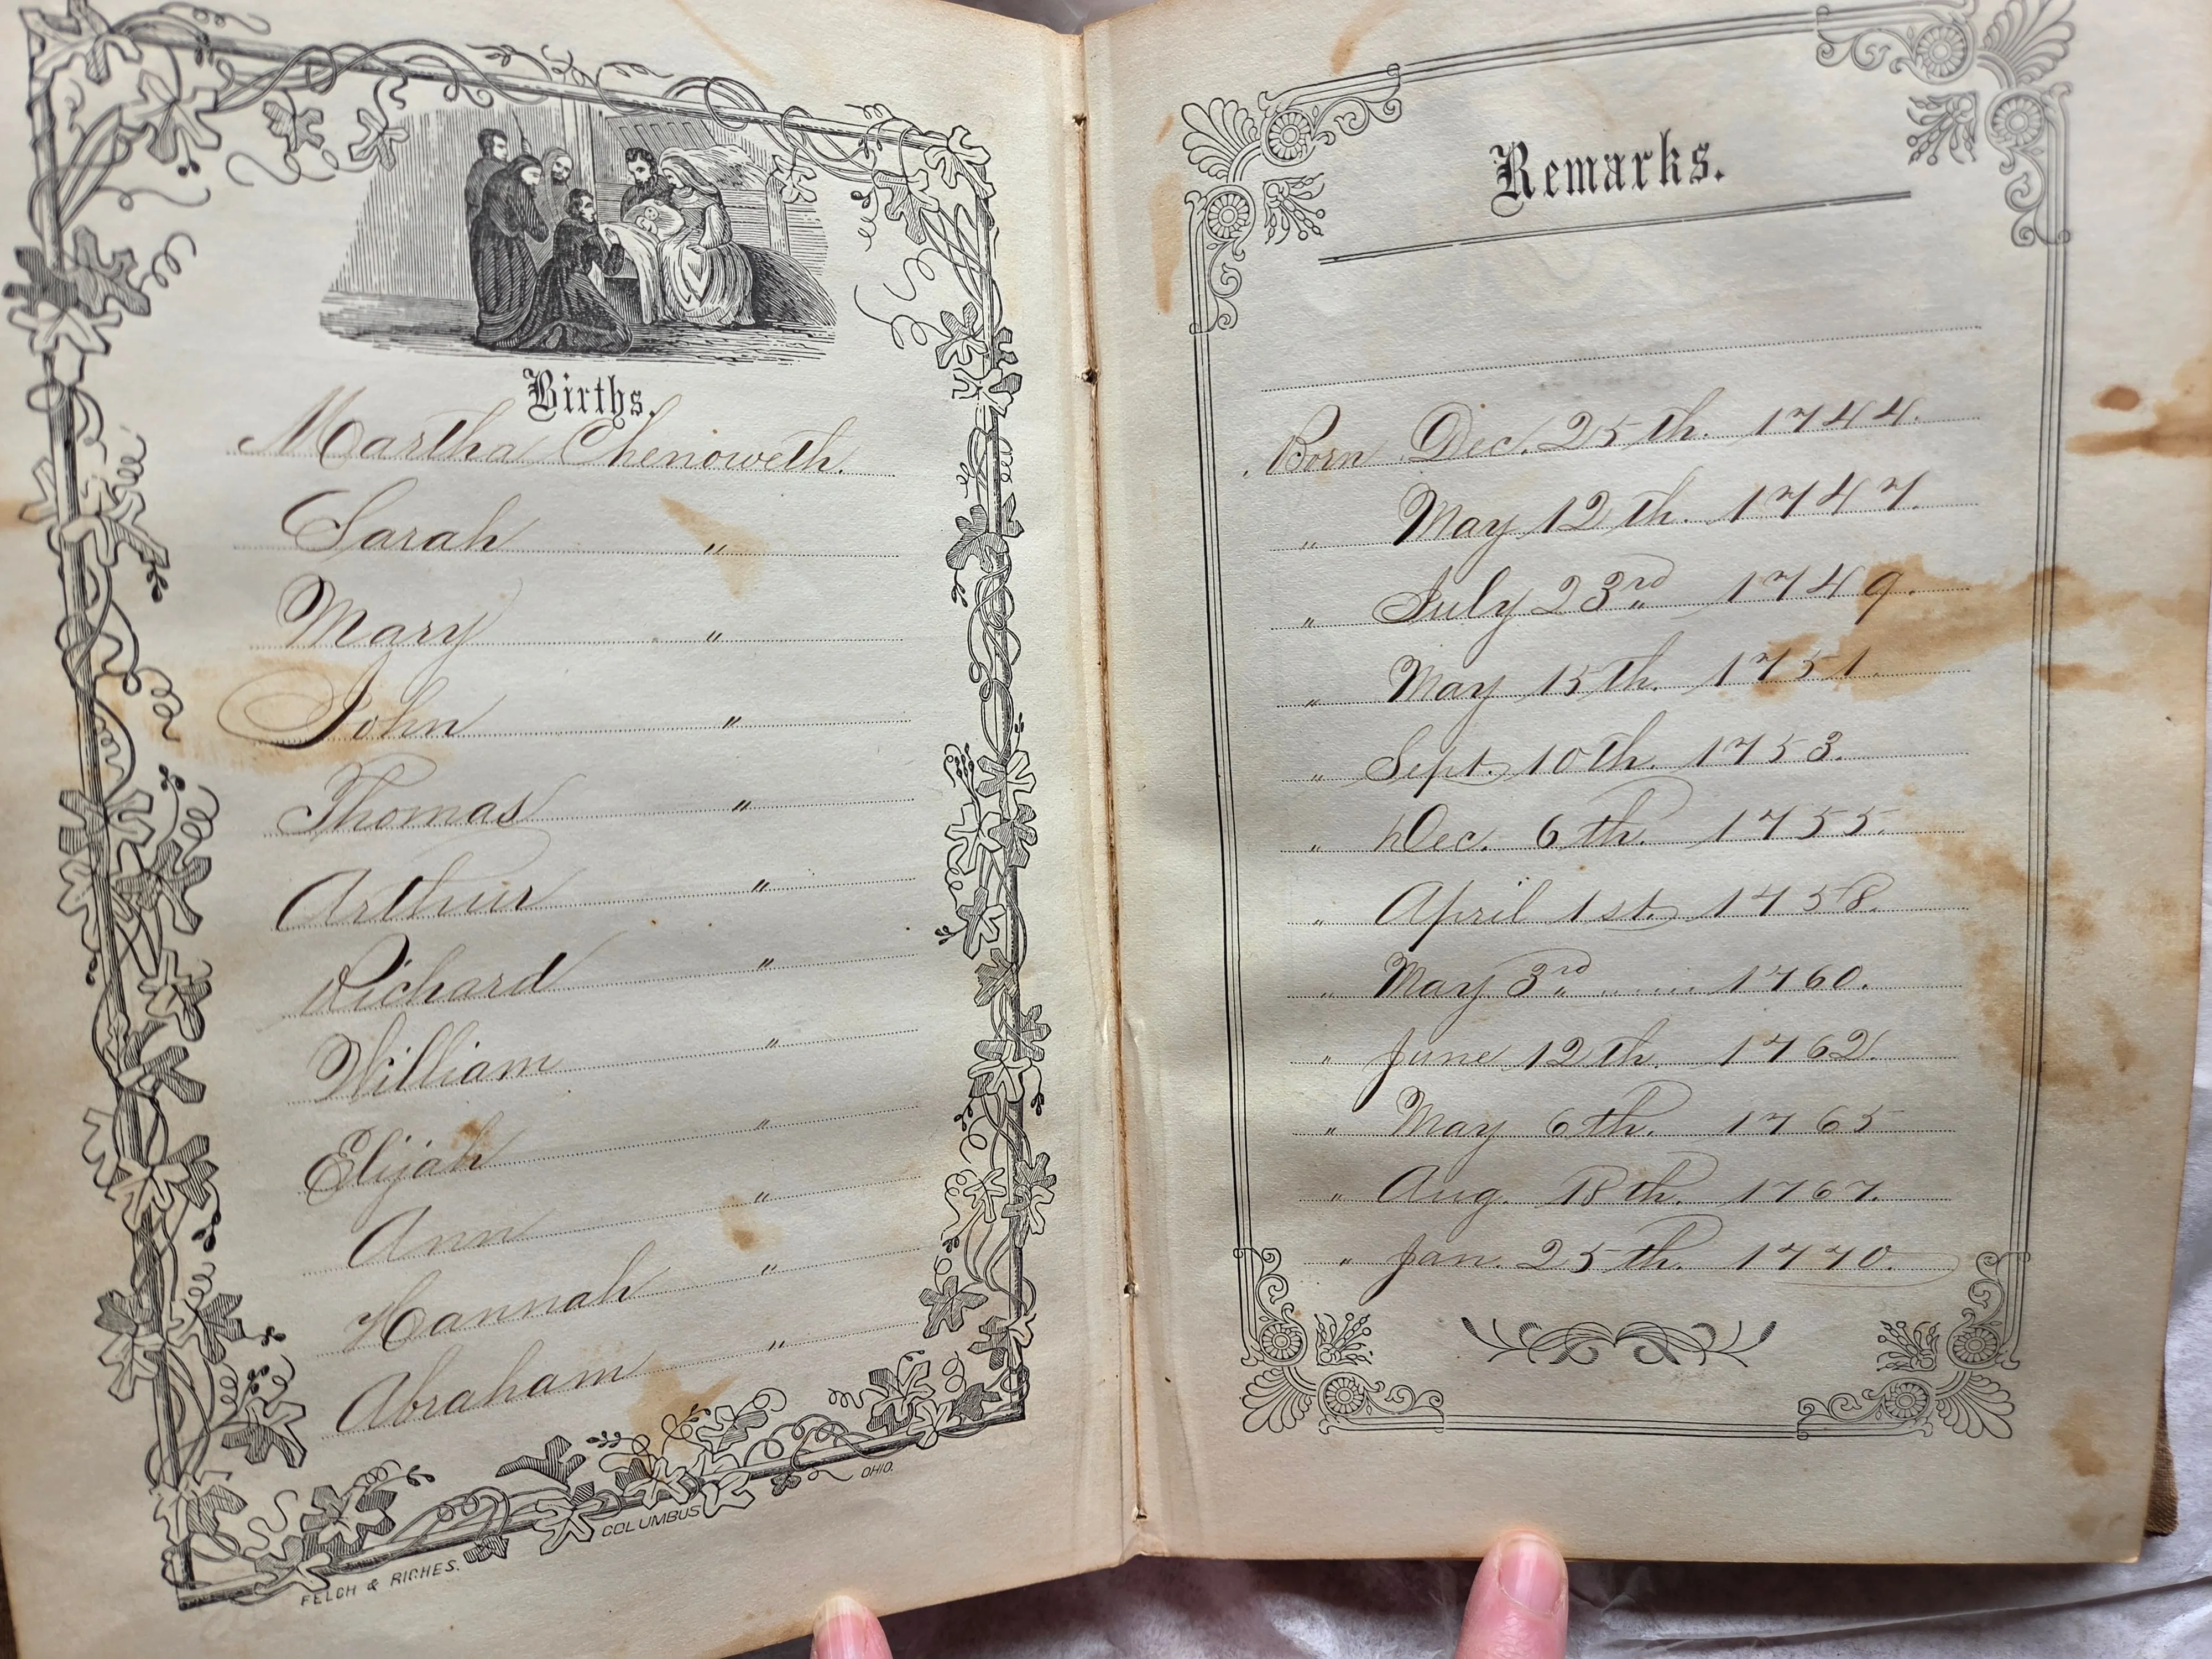 Births.
Martha Chenoweth.
Sarah "
Mary "
John "
Thomas "
Arthur "
Richard "
William "
Elijah "
Ann "
Hannah "
Abraham "
FELCH & RICHES. COLUMBUS OHIO.
Remarks.
Born Dec. 25th. 1744.
" May 12th. 1747.
" July 23rd 1749.
" May 15th. 1751.
" Sept. 10th. 1753.
" Dec. 6th. 1755.
" April 1st. 1758.
" May 3rd 1760.
" June 12th. 1762.
" May 6th. 1765
" Aug. 18th. 1767.
" Jan. 25th. 1770.